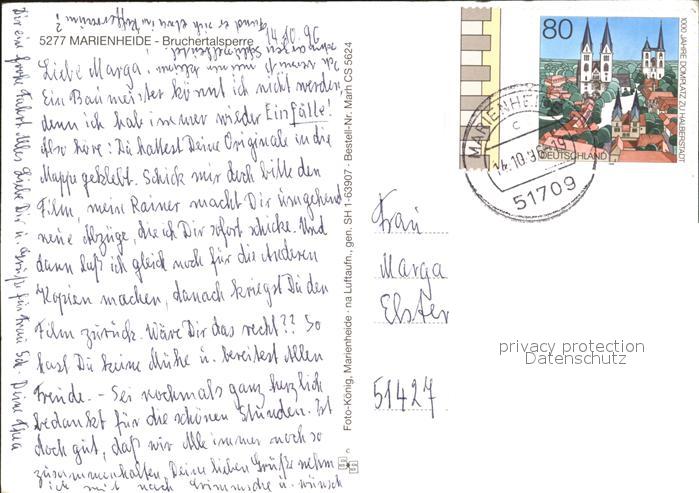 Fand er sich etwa in Kofferraum?
5277 MARIENHEIDE - Bruchertalsperre
14.10.96
Liebe Marga,
Ein Baumeister könnt ich nicht werden,
denn ich hab immer wieder Einfälle!
Also höre: Du hattest Deine Originale in die
Mappe geklebt. Schick mir doch bitte den
Film, mein Rainer macht Dir umgehend
neue Abzüge, die ich Dir sofort schicke. Und
dann laß ich gleich noch für die Anderen
Kopien machen, danach kriegst Du den
Film zurück. Wäre Dir das recht?? So
hast Du keine Mühe u. bereitest Allen
Freude. - Sei nochmals ganz herzlich
bedankt für die schönen Stunden. Ist
doch gut, daß wir Alle immer noch so
zusammenhalten. Deine lieben Grüße nehm
ich mit nach Grimmische u. wünsch
Dir eine frohe Fahrt. Alles Liebe Dir u. Grüße für Frau Sch. Deine Thea
Foto-König, Marienheide · na Luftaufn., gen. SH 1-63907 · Bestell-Nr. Marh CS 5624
80
DEUTSCHLAND
1000 JAHRE DOMPLATZ ZU HALBERSTADT
MARIENHEIDE
c
14.10.96-19
51709
Frau
Marga
Elster
51427
privacy protection
Datenschutz